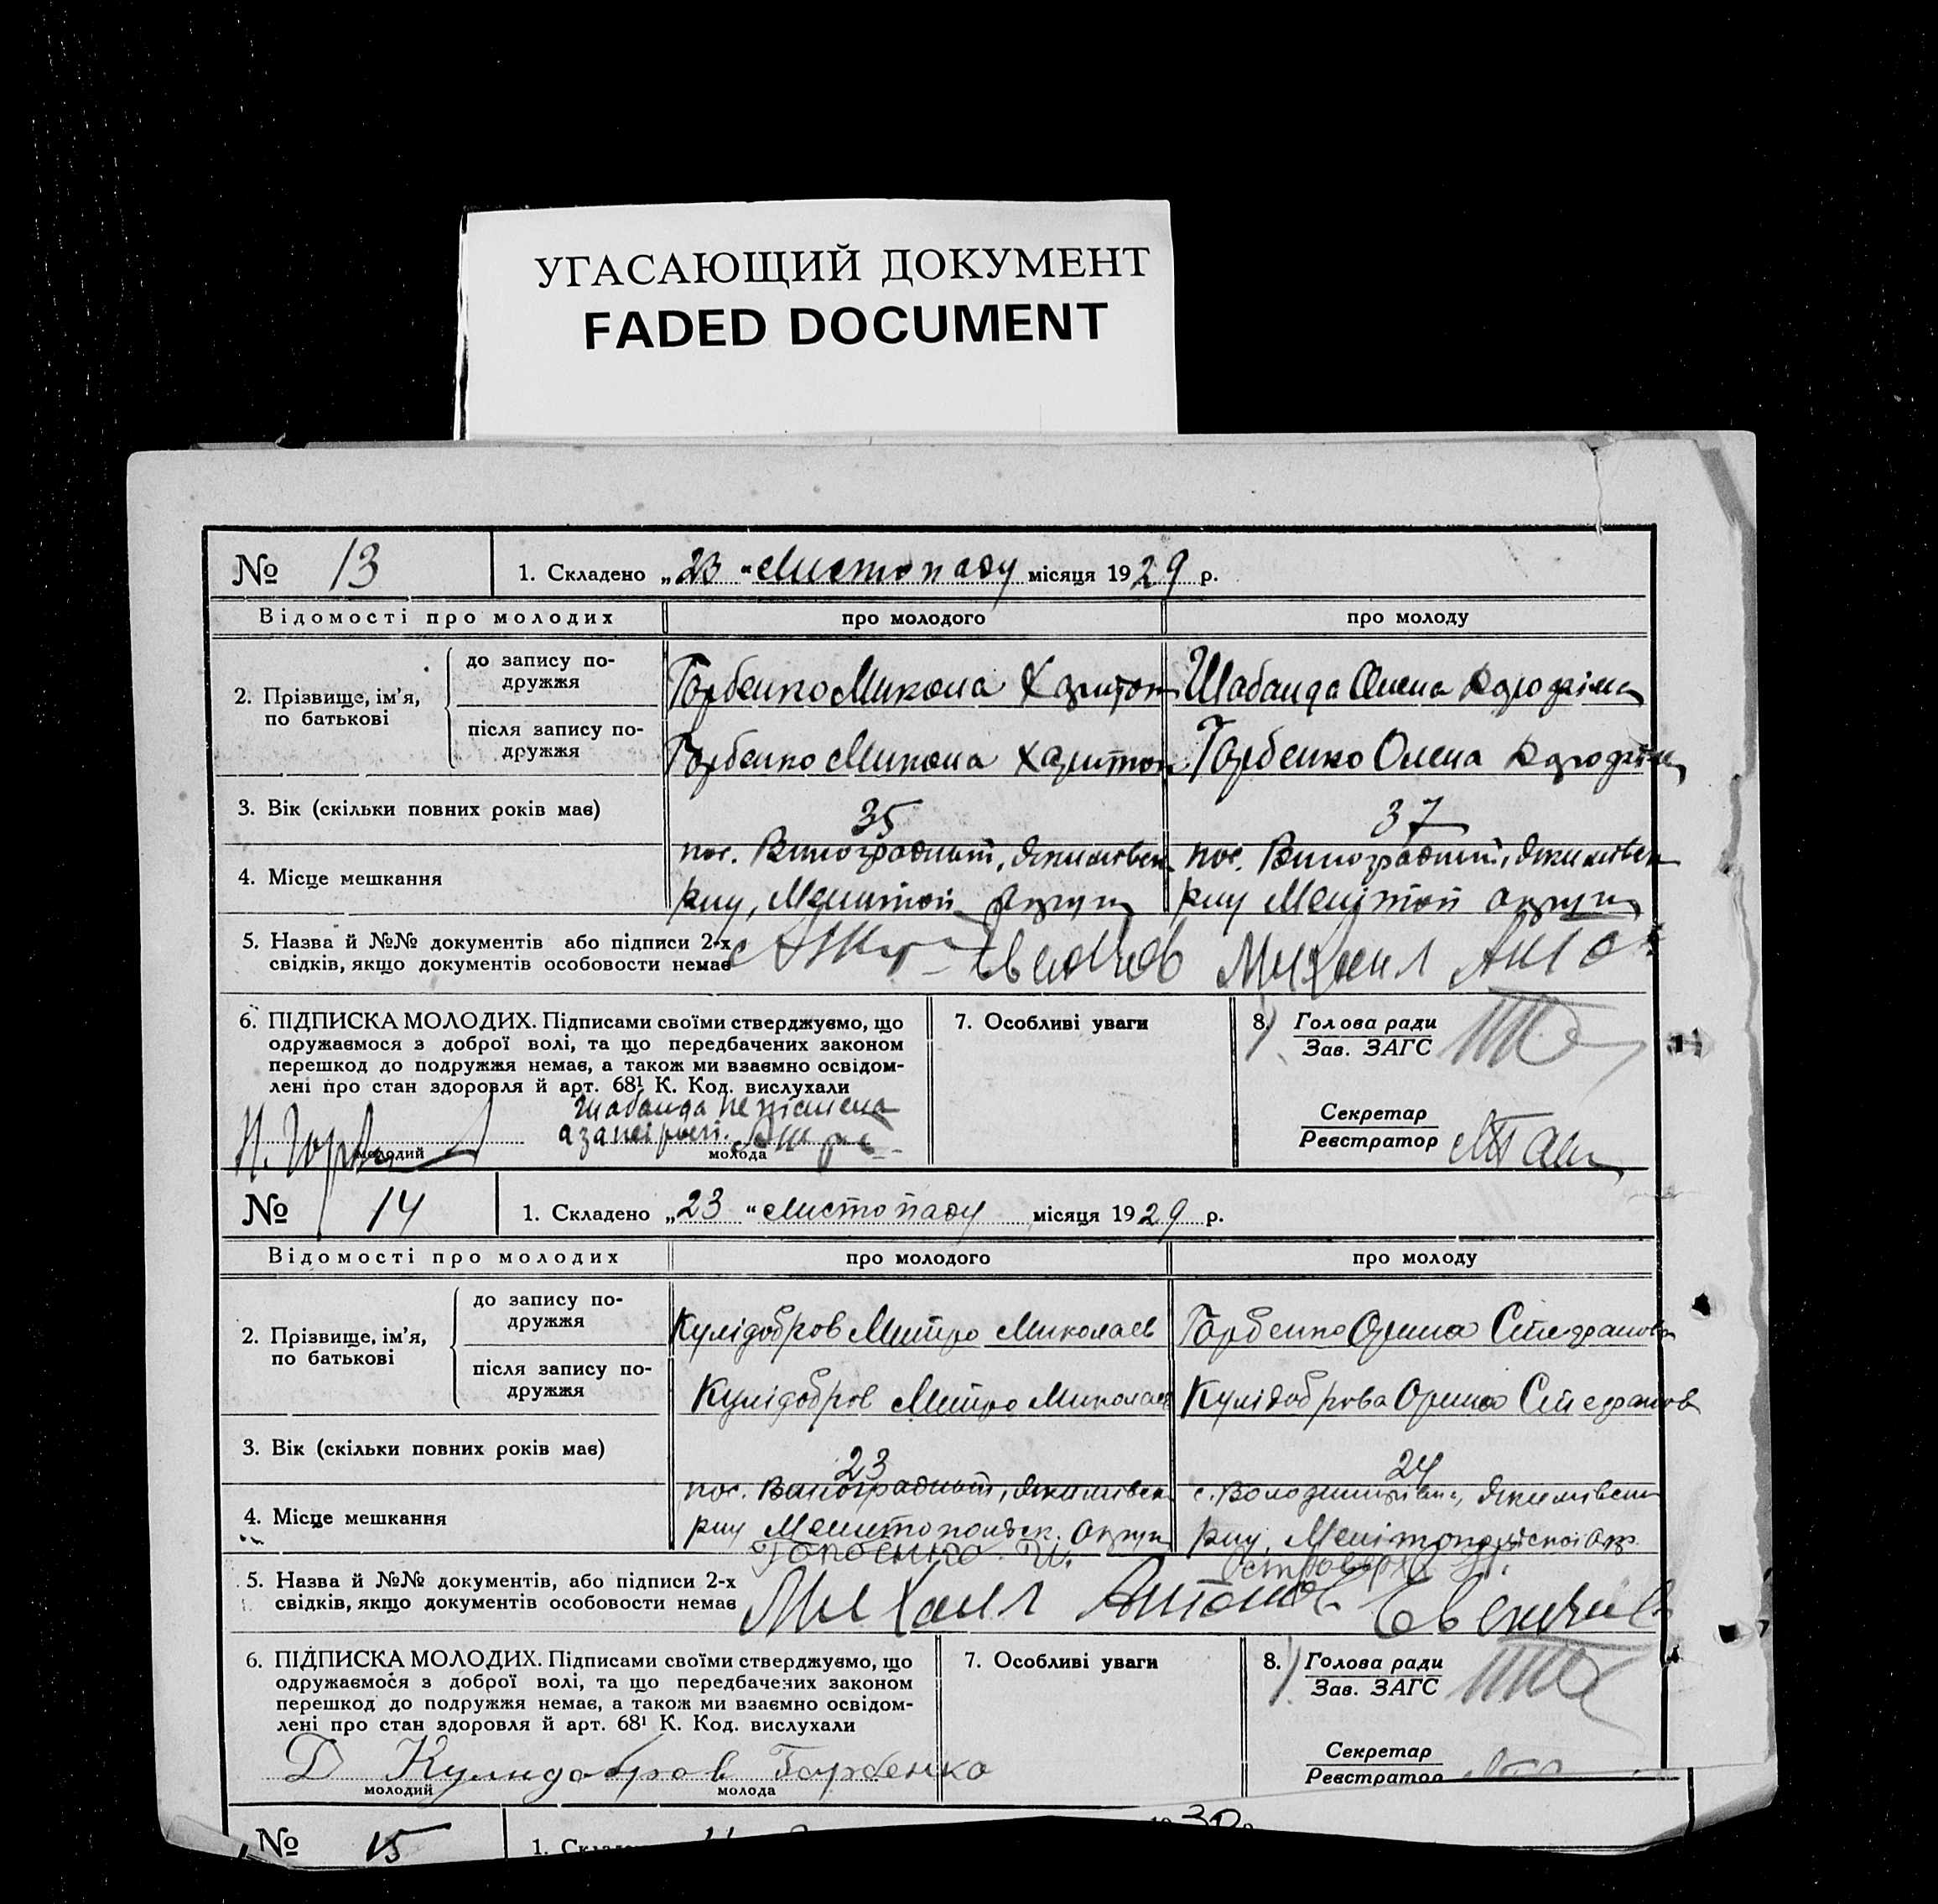 УГАСАЮЩИЙ ДОКУМЕНТ
FADED DOCUMENT
№ 13
1. Складено „23“ Листопаду місяця 1929 р.
Відомості про молодих
про молодого
про молоду
2. Прізвище, ім’я, по батькові
до запису подружжя
Горбенко Микола Харитон
Шабанда Олена
після запису подружжя
Горбенко Микола Харитон
Горбенко Олена
3. Вік (скільки повних років має)
35
37
4. Місце мешкання
пос. Виноградний, Якимівськ
пос. Виноградний, Якимівськ
р-ну, Мелітоп. округи
р-ну Мелітоп округи
5. Назва й №№ документів або підписи 2-х
свідків, якщо документів особовости немає
Михаил
6. ПІДПИСКА МОЛОДИХ. Підписами своїми стверджуємо, що
одружаємося з доброї волі, та що передбачених законом
перешкод до подружжя немає, а також ми взаємно освідом-
лені про стан здоровля й арт. 68¹ К. Код. вислухали
Шабанда неписьмена
а за неї
молодий
молода
7. Особливі уваги
8. Голова ради
Зав. ЗАГС
Секретар
Реєстратор
№ 14
1. Складено „23“ Листопаду місяця 1929 р.
Відомості про молодих
про молодого
про молоду
2. Прізвище, ім’я, по батькові
до запису подружжя
Кулідобров Митро Миколаєв
Горбенко Орина Стефанов
після запису подружжя
Кулідобров Митро Миколаєв
Кулідоброва Орина Стефанов
3. Вік (скільки повних років має)
23
24
4. Місце мешкання
пос. Виноградний, Якимівськ
с. Володимирівка, Якимівськ
р-ну Мелитопольськ. округи
р-ну, Мелітопольської окр.
5. Назва й №№ документів, або підписи 2-х
свідків, якщо документів особовости немає
Михаил Антонов
6. ПІДПИСКА МОЛОДИХ. Підписами своїми стверджуємо, що
одружаємося з доброї волі, та що передбачених законом
перешкод до подружжя немає, а також ми взаємно освідом-
лені про стан здоровля й арт. 68¹ К. Код. вислухали
Д Кулидобров Горбенко
молодий
молода
7. Особливі уваги
8. Голова ради
Зав. ЗАГС
Секретар
Реєстратор
№ 15
1.
30